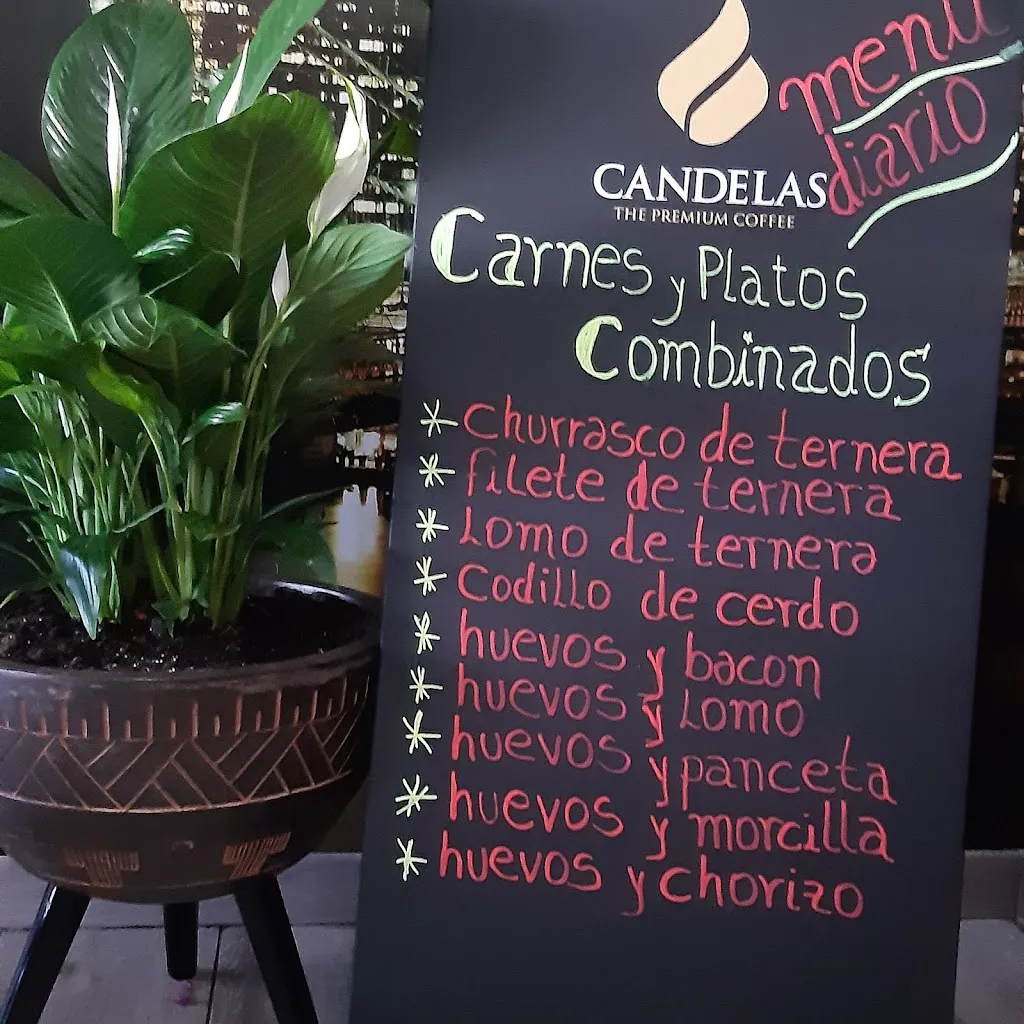 menú
diario
CANDELAS
THE PREMIUM COFFEE
Carnes y Platos
Combinados
* Churrasco de ternera
* filete de ternera
* Lomo de ternera
* Codillo de cerdo
* huevos y bacon
* huevos y Lomo
* huevos y panceta
* huevos y morcilla
* huevos y chorizo